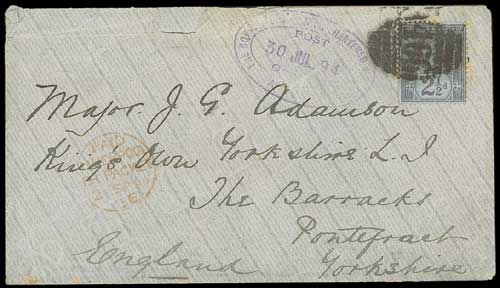 POST
30 JUL. 94
2½d
Major J. G. Adamson
King's Own Yorkshire L. I
The Barracks
Pontefract
England Yorkshire